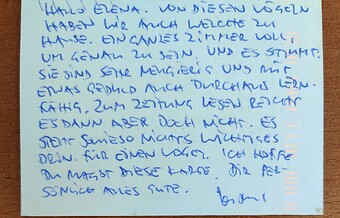 HALLO ELENA. VON DIESEN VÖGELN
HABEN WIR AUCH WELCHE ZU
HAUSE. EIN GANZES ZIMMER VOLL,
UM GENAU ZU SEIN, UND ES STIMMT:
SIE SIND SEHR NEUGIERIG UND MIT
ETWAS GEDULD AUCH DURCHAUS LERN-
FÄHIG. ZUM ZEITUNG LESEN REICHT
ES DANN ABER DOCH NICHT. ES
STEHT SOWIESO NICHTS WICHTIGES
DRIN. FÜR EINEN VOGEL. ICH HOFFE
DU MAGST DIESE KARTE. DIR PER-
SÖNLICH ALLES GUTE.